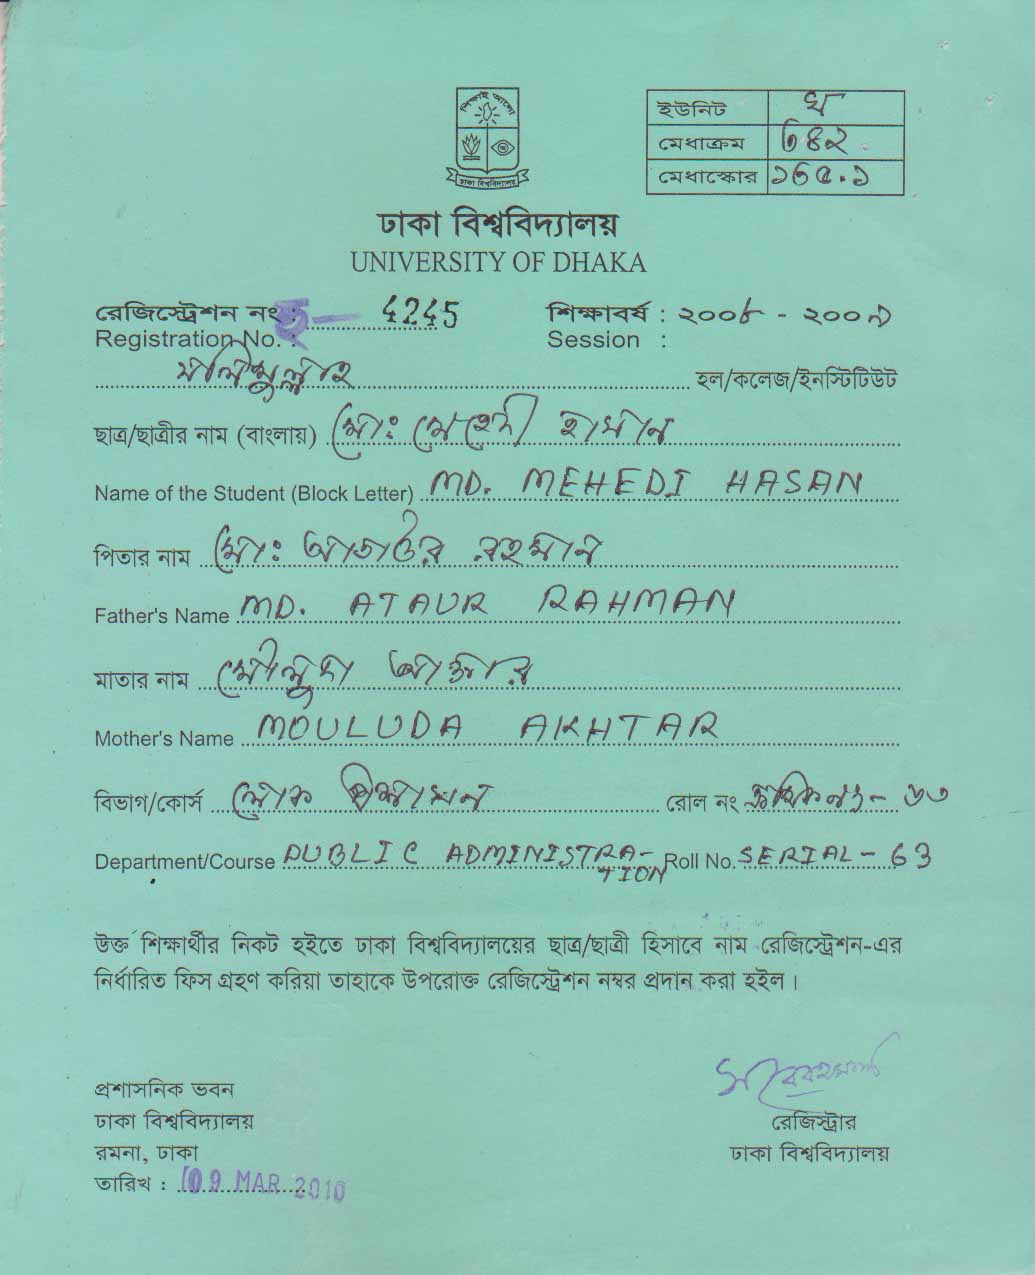 শিক্ষাই আলো
ঢাকা বিশ্ববিদ্যালয়
ইউনিট খ
মেধাক্রম ৮৪২
মেধাস্কোর ১৬৫.১
ঢাকা বিশ্ববিদ্যালয়
UNIVERSITY OF DHAKA
রেজিস্ট্রেশন নং : 4245 শিক্ষাবর্ষ : ২০০৮ - ২০০৯
Registration No. : Session :
সলিমুল্লাহ হল/কলেজ/ইনস্টিটিউট
ছাত্র/ছাত্রীর নাম (বাংলায়) মোঃ মেহেদী হাসান
Name of the Student (Block Letter) MD. MEHEDI HASAN
পিতার নাম মোঃ আতাউর রহমান
Father's Name MD. ATAUR RAHMAN
মাতার নাম মৌলুদা আক্তার
Mother's Name MOULUDA AKHTAR
বিভাগ/কোর্স লোক প্রশাসন রোল নং ক্রমিক নং - ৬৩
Department/Course PUBLIC ADMINISTRA-TION Roll No. SERIAL - 63
উক্ত শিক্ষার্থীর নিকট হইতে ঢাকা বিশ্ববিদ্যালয়ের ছাত্র/ছাত্রী হিসাবে নাম রেজিস্ট্রেশন-এর
নির্ধারিত ফিস গ্রহণ করিয়া তাহাকে উপরোক্ত রেজিস্ট্রেশন নম্বর প্রদান করা হইল।
প্রশাসনিক ভবন
ঢাকা বিশ্ববিদ্যালয়
রমনা, ঢাকা
তারিখ : 09 MAR 2010
রেজিস্ট্রার
ঢাকা বিশ্ববিদ্যালয়